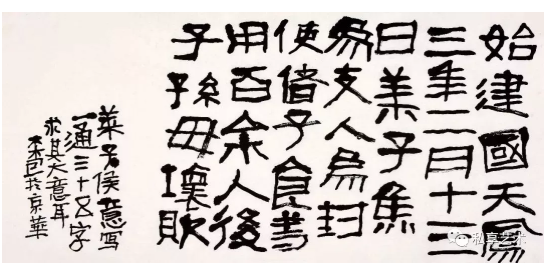 始建國天鳳
三年二月十三
日萊子侯
爲支人爲封
使偖子食等
用百余人後
子孫毋壞敗
萊子侯意寫
一通三十五字
求其大意耳
於京華
私享艺术